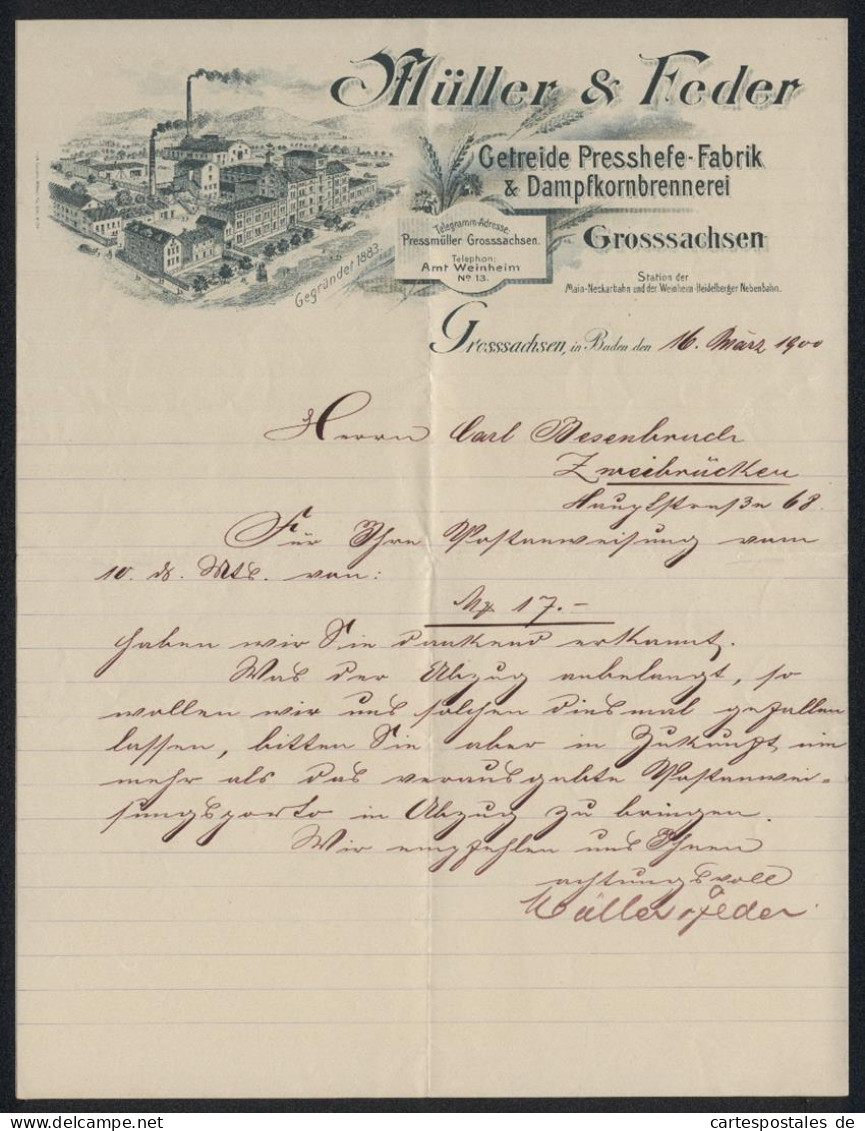 Müller & Feder
Getreide Presshefe-Fabrik
& Dampfkornbrennerei
Telegramm-Adresse:
Pressmüller Grosssachsen.
Telephon:
Amt Weinheim
No 13.
Grosssachsen
Gegründet 1883.
Station der
Main-Neckarbahn und der Weinheim-Heidelberger Nebenbahn.
Grosssachsen, in Baden den 16. März 1900
Herrn Carl Besenbruch
Zweibrücken
Hauptstraße 68.
Für Ihre Postanweisung vom
10. ds. Mts. von:
Mk 17.–
haben wir Sie dankend erkannt.
Was der Abzug anbelangt, so
wollen wir uns solchen diesmal gefallen
lassen, bitten Sie aber in Zukunft nie
mehr als das verausgabte Postanwei-
sungsporto in Abzug zu bringen.
Wir empfehlen uns Ihnen
achtungsvoll
Müller & Feder.
www.cartespostales.de
cartespostales.de